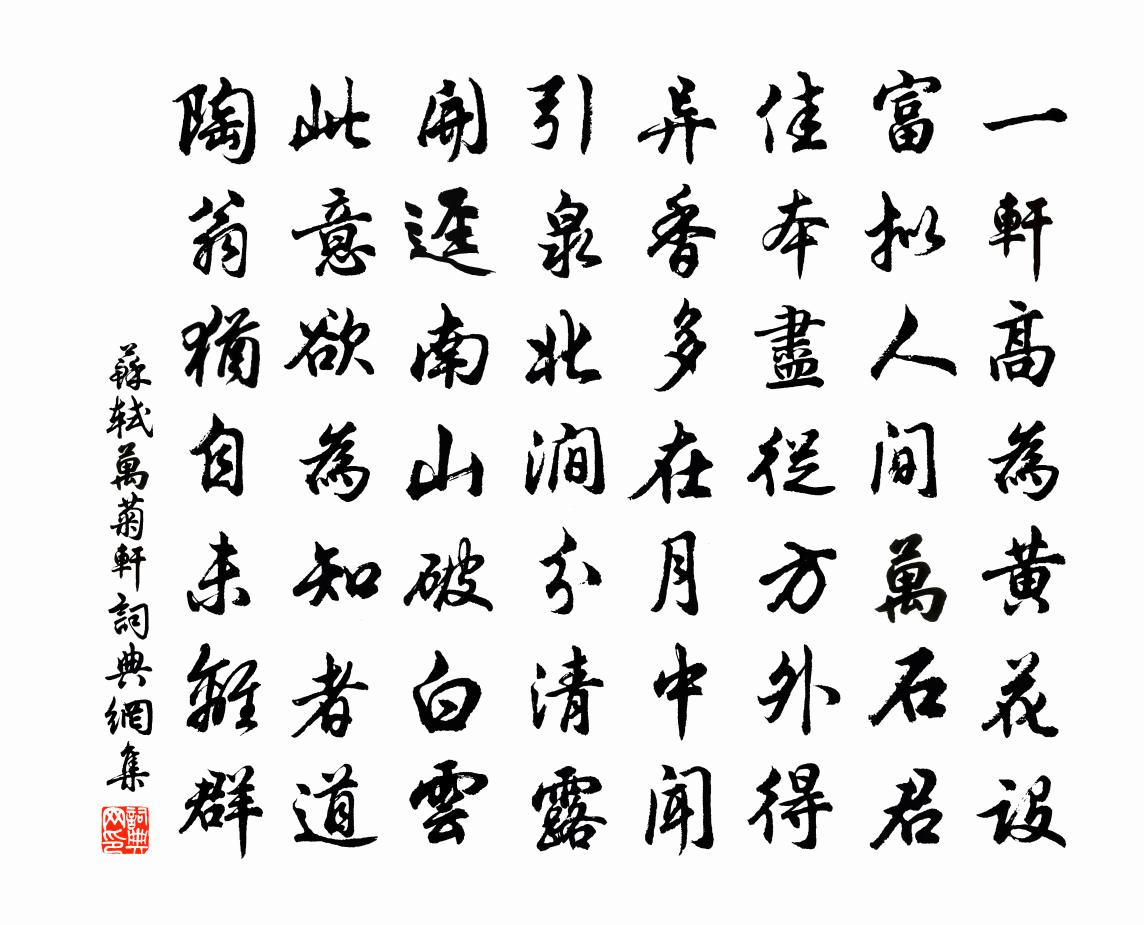 一軒髙為黄花設
富拟人间萬石君
佳本盡從方外得
异香多在月中闻
引泉北澗分清露
開逕南山破白雲
此意欲為知者道
陶翁猶自未離群
蘇轼萬菊軒詞典網集
詞典网印